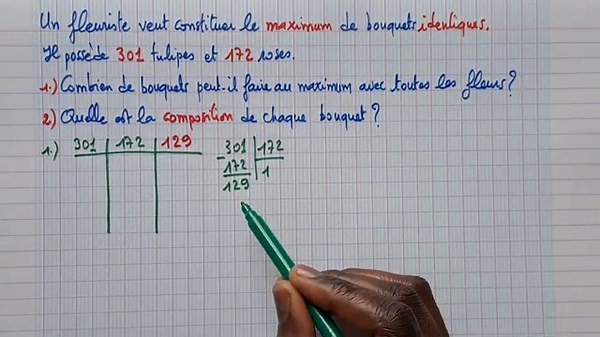 Un fleuriste veut constituer le maximum de bouquets identiques.
Il possède 301 tulipes et 172 roses.
1.) Combien de bouquets peut-il faire au maximum avec toutes les fleurs ?
2) Quelle est la composition de chaque bouquet ?
1.) 301 | 172 | 129
301 | 172
- 172 | 1
129